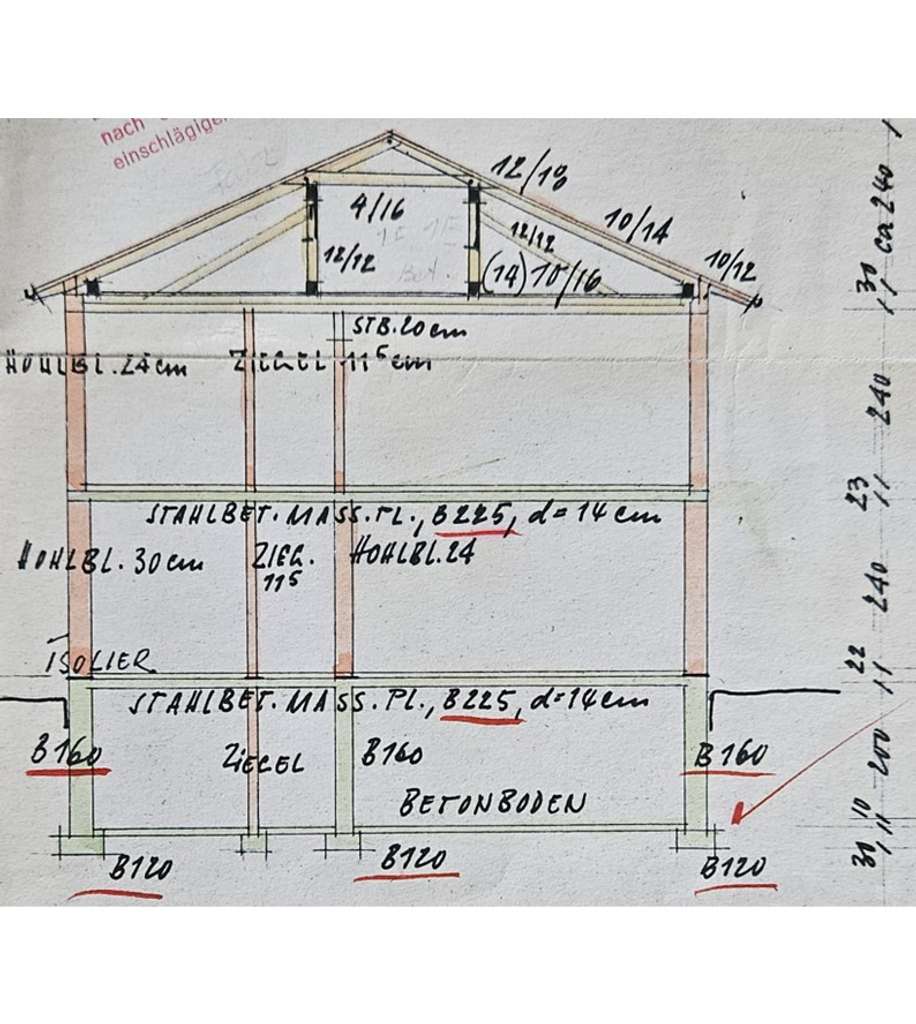 nach
einschlägige
12/18
4/16
10/14
12/12
12/12
10/12
(14) 10/16
STB. 20 cm
HOHLBL. 24 cm
ZIEGEL 11⁵ cm
STAHLBET. MASS. PL., B225, d = 14 cm
HOHLBL. 30 cm
ZIEG.
11⁵
HOHLBL. 24
ISOLIER
STAHLBET. MASS. PL., B225, d = 14 cm
B160
ZIEGEL
B160
B160
BETONBODEN
B120
B120
B120
30 ca 240
240
23
240
22
200
10
30